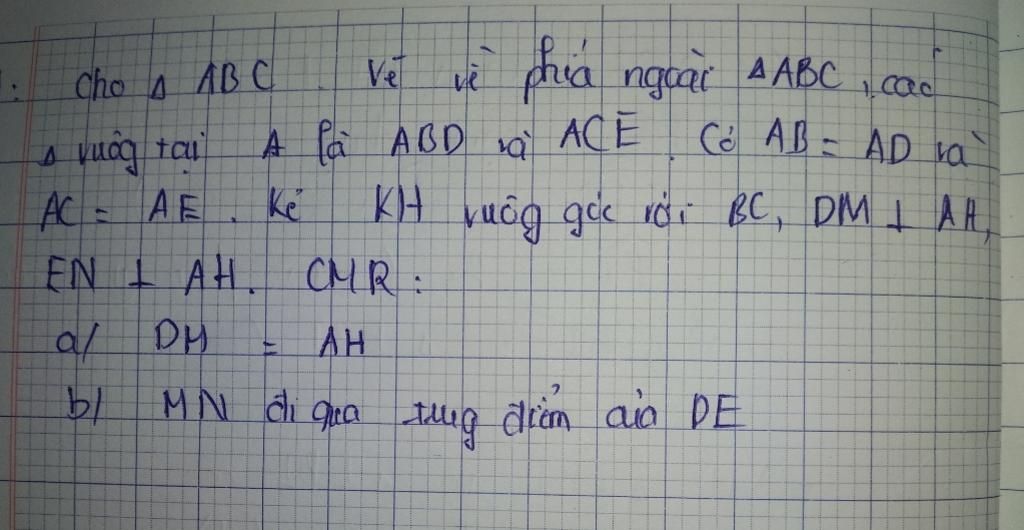 : Cho Δ ABC. Vẽ về phía ngoài Δ ABC, các
Δ vuôg tại A là ABD và ACE. Có AB = AD và
AC = AE. Kẻ KH vuôg góc với BC, DM ⊥ AH,
EN ⊥ AH. CMR:
a/ DM = AH
b/ MN đi qua trug điểm của DE